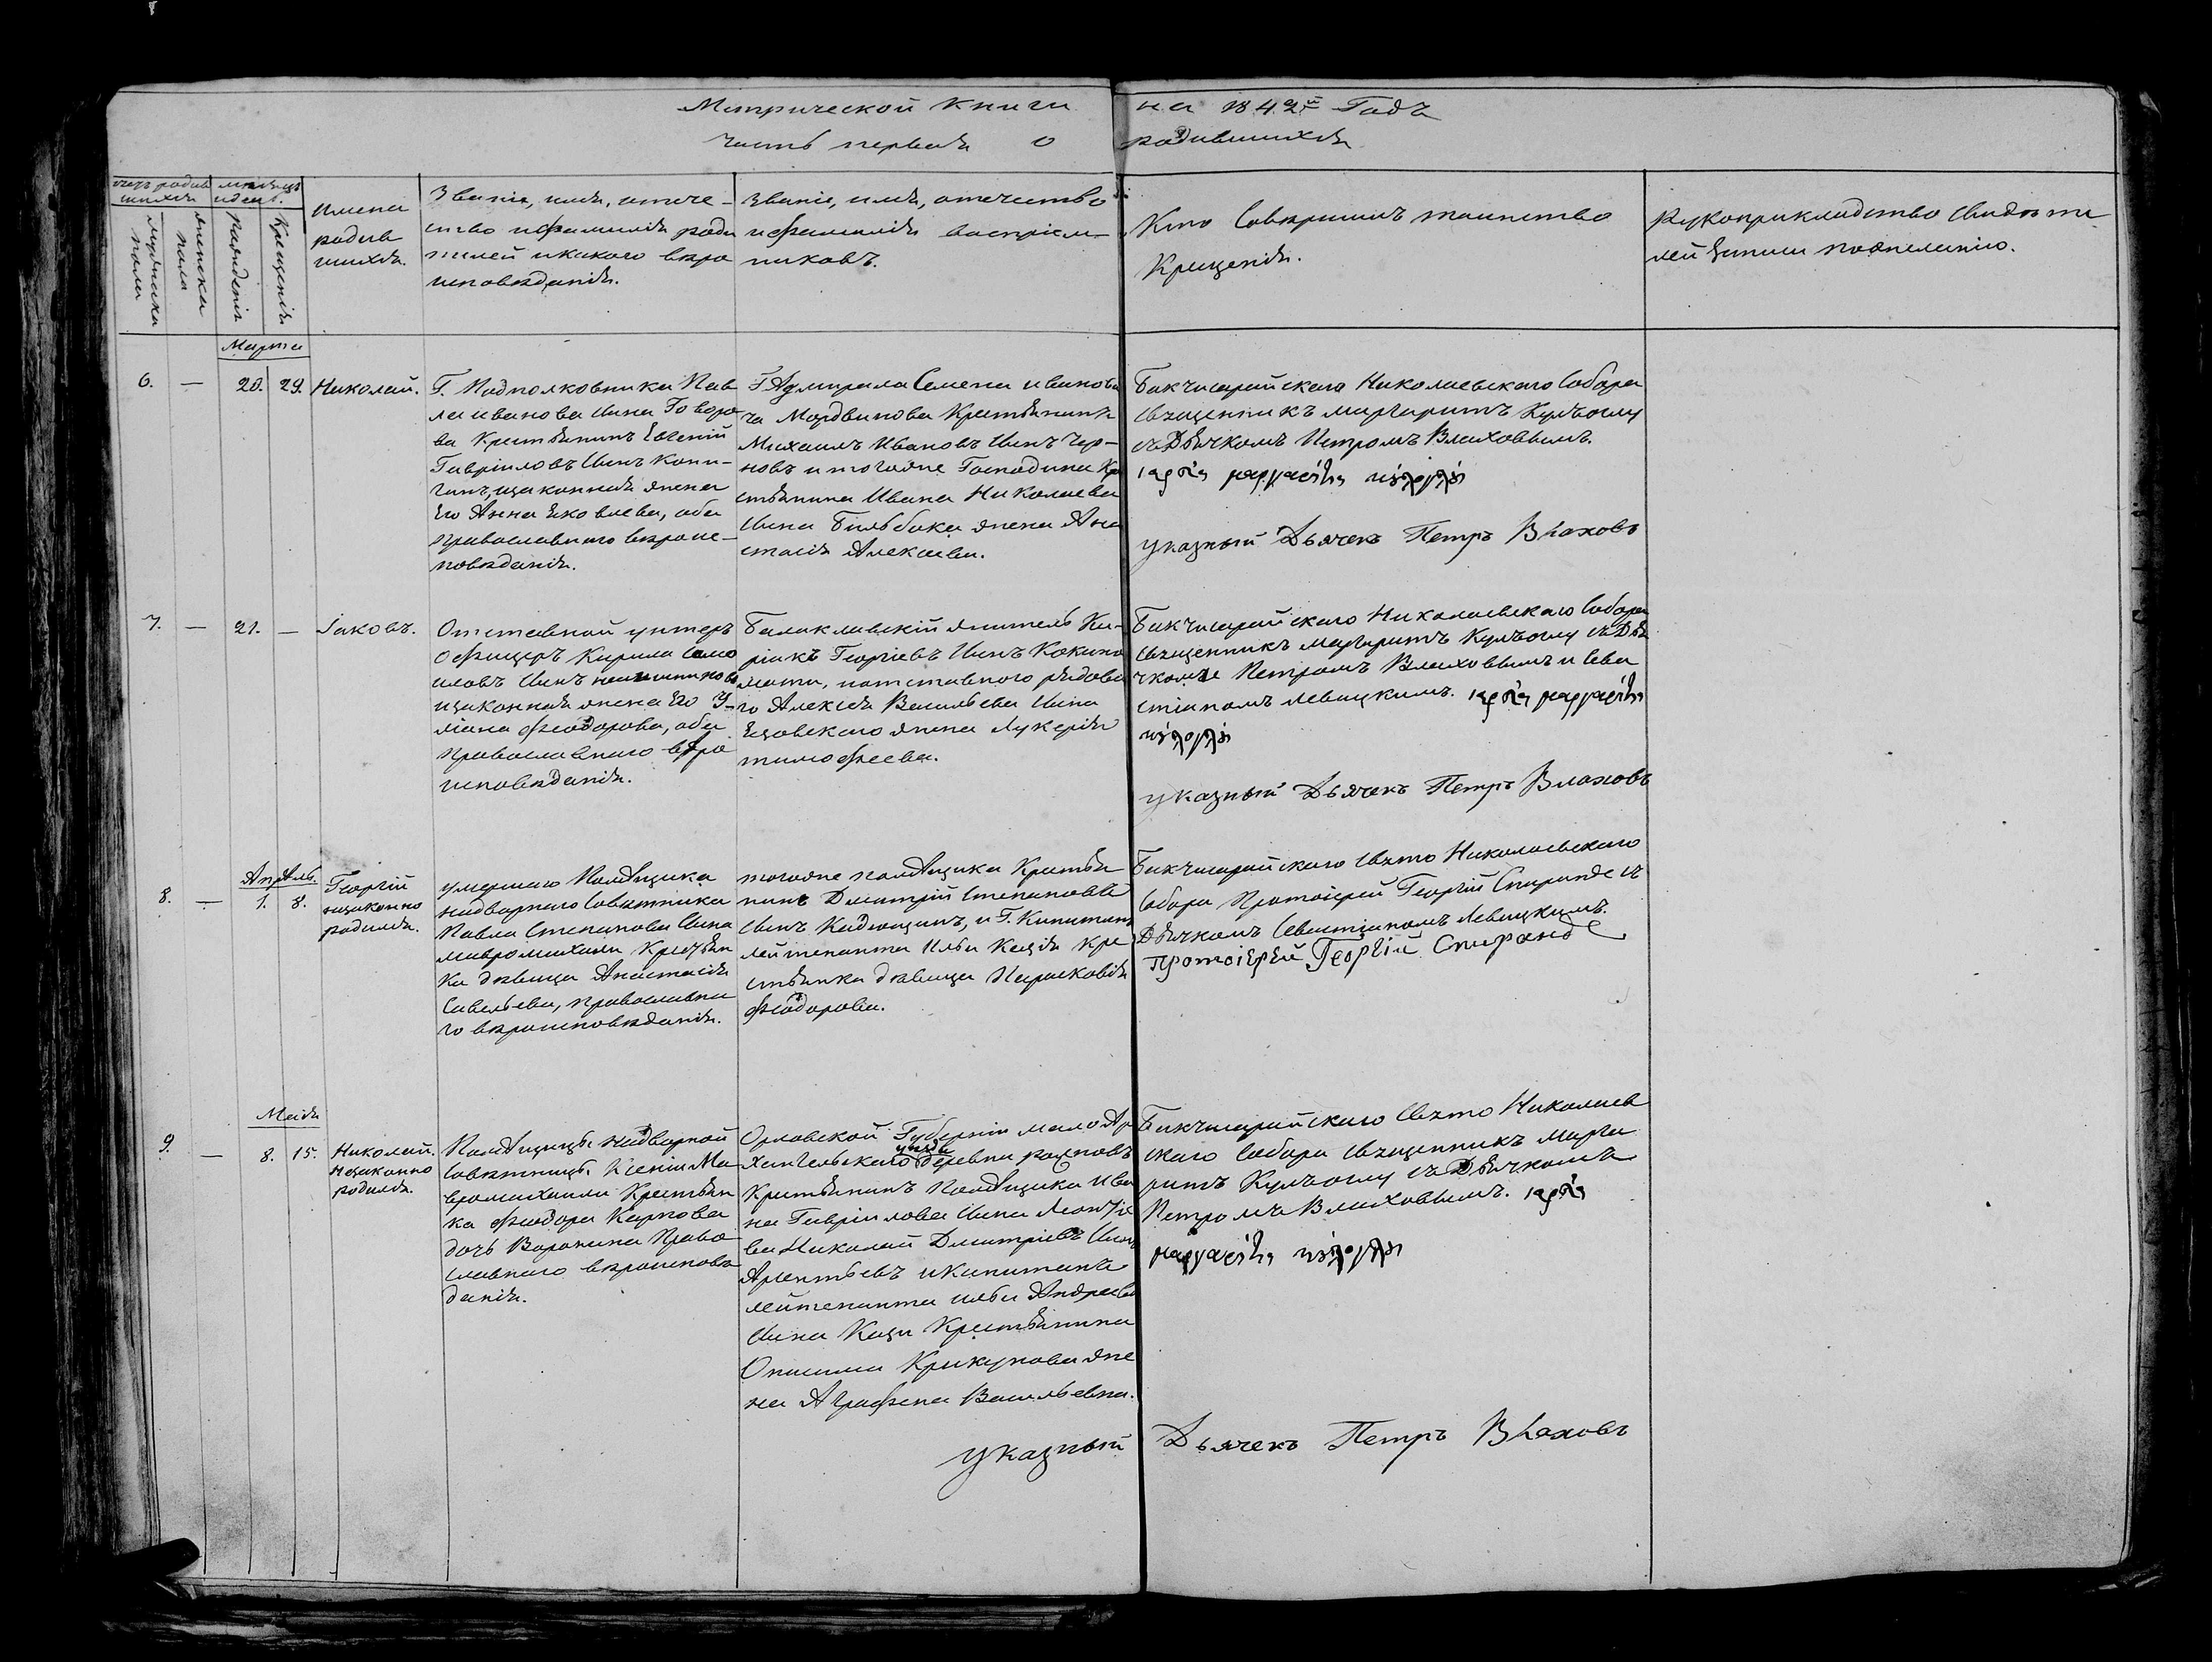 Метрической книги на 1842й Годъ
часть первая о родившихся
счетъ родив
шихся
мѣсяцъ
и день.
мужеска
пола
женска
пола
рожденія
крещенія
Имена
родив
шихся.
Званіе, имя, отече-
ство и фамилія роди
телей и какого вѣро
исповѣданія.
Званіе, имя, отечество
и фамилія воспріем-
никовъ.
Кто совершилъ таинство
Крещенія.
Рукоприкладство свидѣте
лей записи по желанію.
Марта
6. — 20. 29. Николай.
Г. Подполковника Пав
ла иванова сына Говоро
ва Крестьянинъ Евгеній
Гавріиловъ сынъ
законная жена
Его Анна Яковлева, оба
православнаго вѣроис-
повѣданія.
Г Адмирала Семена иванови
ча Мордвинова Крестьянинъ
Михаилъ Ивановъ сынъ Чер-
новъ и тогоже Господина кре
стьянина Ивана Николаева
сына жена Ана
стасія Алексеева.
Бакчисарайскаго Николаевскаго Собора
священникъ маргаритъ Кулъоглу
съ Дьячкомъ Петромъ Влаховымъ.
указный Дьячекъ Петръ Влаховъ
7. — 21. — Іаковъ.
Отставной унтеръ
Офицеръ Кирила Само
иловъ сынъ
и законная жена Его У-
ліана Феодорова, оба
православнаго вѣро
исповѣданія.
Балаклавскій житель Ки-
ріакъ Георгіевъ сынъ
и отставного рядова
го Алексѣя Васильева сына
жена Лукерія
тимофеева.
Бакчисарайскаго Николаевскаго Собора
священникъ маргаритъ Кулъоглу съ Дья
чкомъ Петромъ Влаховымъ и Сева
стіаномъ Левицкимъ.
указный Дьячекъ Петръ Влаховъ
Апрѣль.
8. — 1. 8. Георгій
незаконно
родился.
умершаго Помѣщика
надворнаго Совѣтника
Павла Степанова сына
мавромихали Крестьян
ка дѣвица Анастасія
Савельева, православна
го вѣроисповѣданія.
тогоже помѣщика Крестья
нинъ Дмитрій Степановъ
сынъ и Г. Капитанъ
лейтенанта Ильи Кація кре
стьянка дѣвица Параскевія
Феодорова.
Бакчисарайскаго Свято Николаевскаго
Собора Протоіерей Георгій Спиранде съ
Дьячкомъ Севастіаномъ Левицкимъ.
Протоіерей Георгій Спиранде
Маія
9. — 8. 15. Николай.
незаконно
родился.
Помѣщицы надворной
Совѣтницы Ксеніи Ма
вромихали Крестьян
ка Феодора Карпова
дочь Воронина Право
славнаго вѣроисповѣ
данія.
Орловской Губерніи малоАр
хангельскаго уѣзда деревни
Крестьянинъ Помѣщика Ива
на Гавріилова сына Леонтіе
ва Николай Дмитріевъ сынъ
и капитана
лейтенанта ильи Андреева
сына Каци Крестьянина
Онисима Крикунова же
на Аграфена Васильевна.
Бакчисарайскаго Свято Николаев
скаго Собора священникъ Марга
ритъ Кулъоглу съ Дьячкомъ
Петромъ Влаховымъ.
указный Дьячекъ Петръ Влаховъ